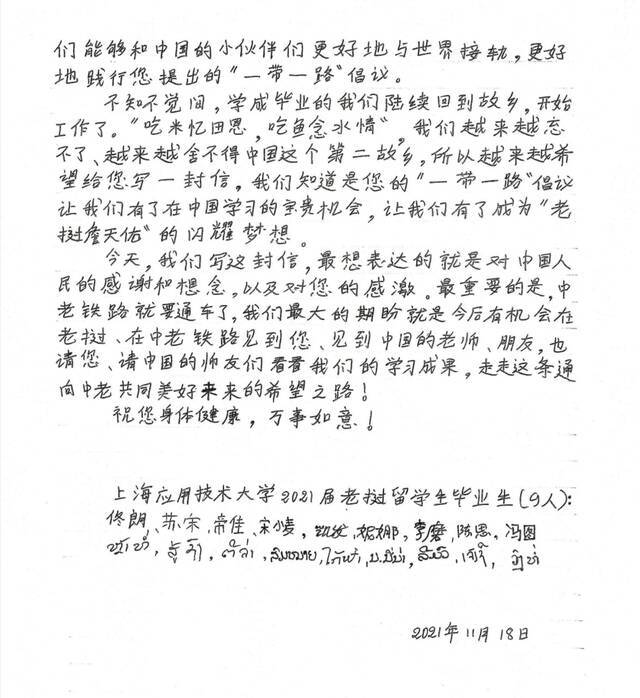 们能够和中国的小伙伴们更好地与世界接轨,更好
地践行您提出的"一带一路"倡议。
不知不觉间,学成毕业的我们陆续回到故乡,开始
工作了。"吃米忆田恩,吃鱼念水情",我们越来越忘
不了、越来越舍不得中国这个第二故乡,所以越来越希
望给您写一封信。我们知道是您的"一带一路"倡议
让我们有了在中国学习的宝贵机会,让我们有了成为"老
挝詹天佑"的闪耀梦想。
今天,我们写这封信,最想表达的就是对中国人
民的感谢和想念,以及对您的感激。最重要的是,中
老铁路就要通车了,我们最大的期盼就是今后有机会在
老挝、在中老铁路见到您、见到中国的老师、朋友,也
请您、请中国的师友们看看我们的学习成果,走走这条通
向中老共同美好来来的希望之路!
祝您身体健康,万事如意!
上海应用技术大学2021届老挝留学生毕业生(9人):
佟朗、苏宋、帝佳、宋小凌,凯纹,妮娜,李磨,陈思,冯图
2021年11月18日